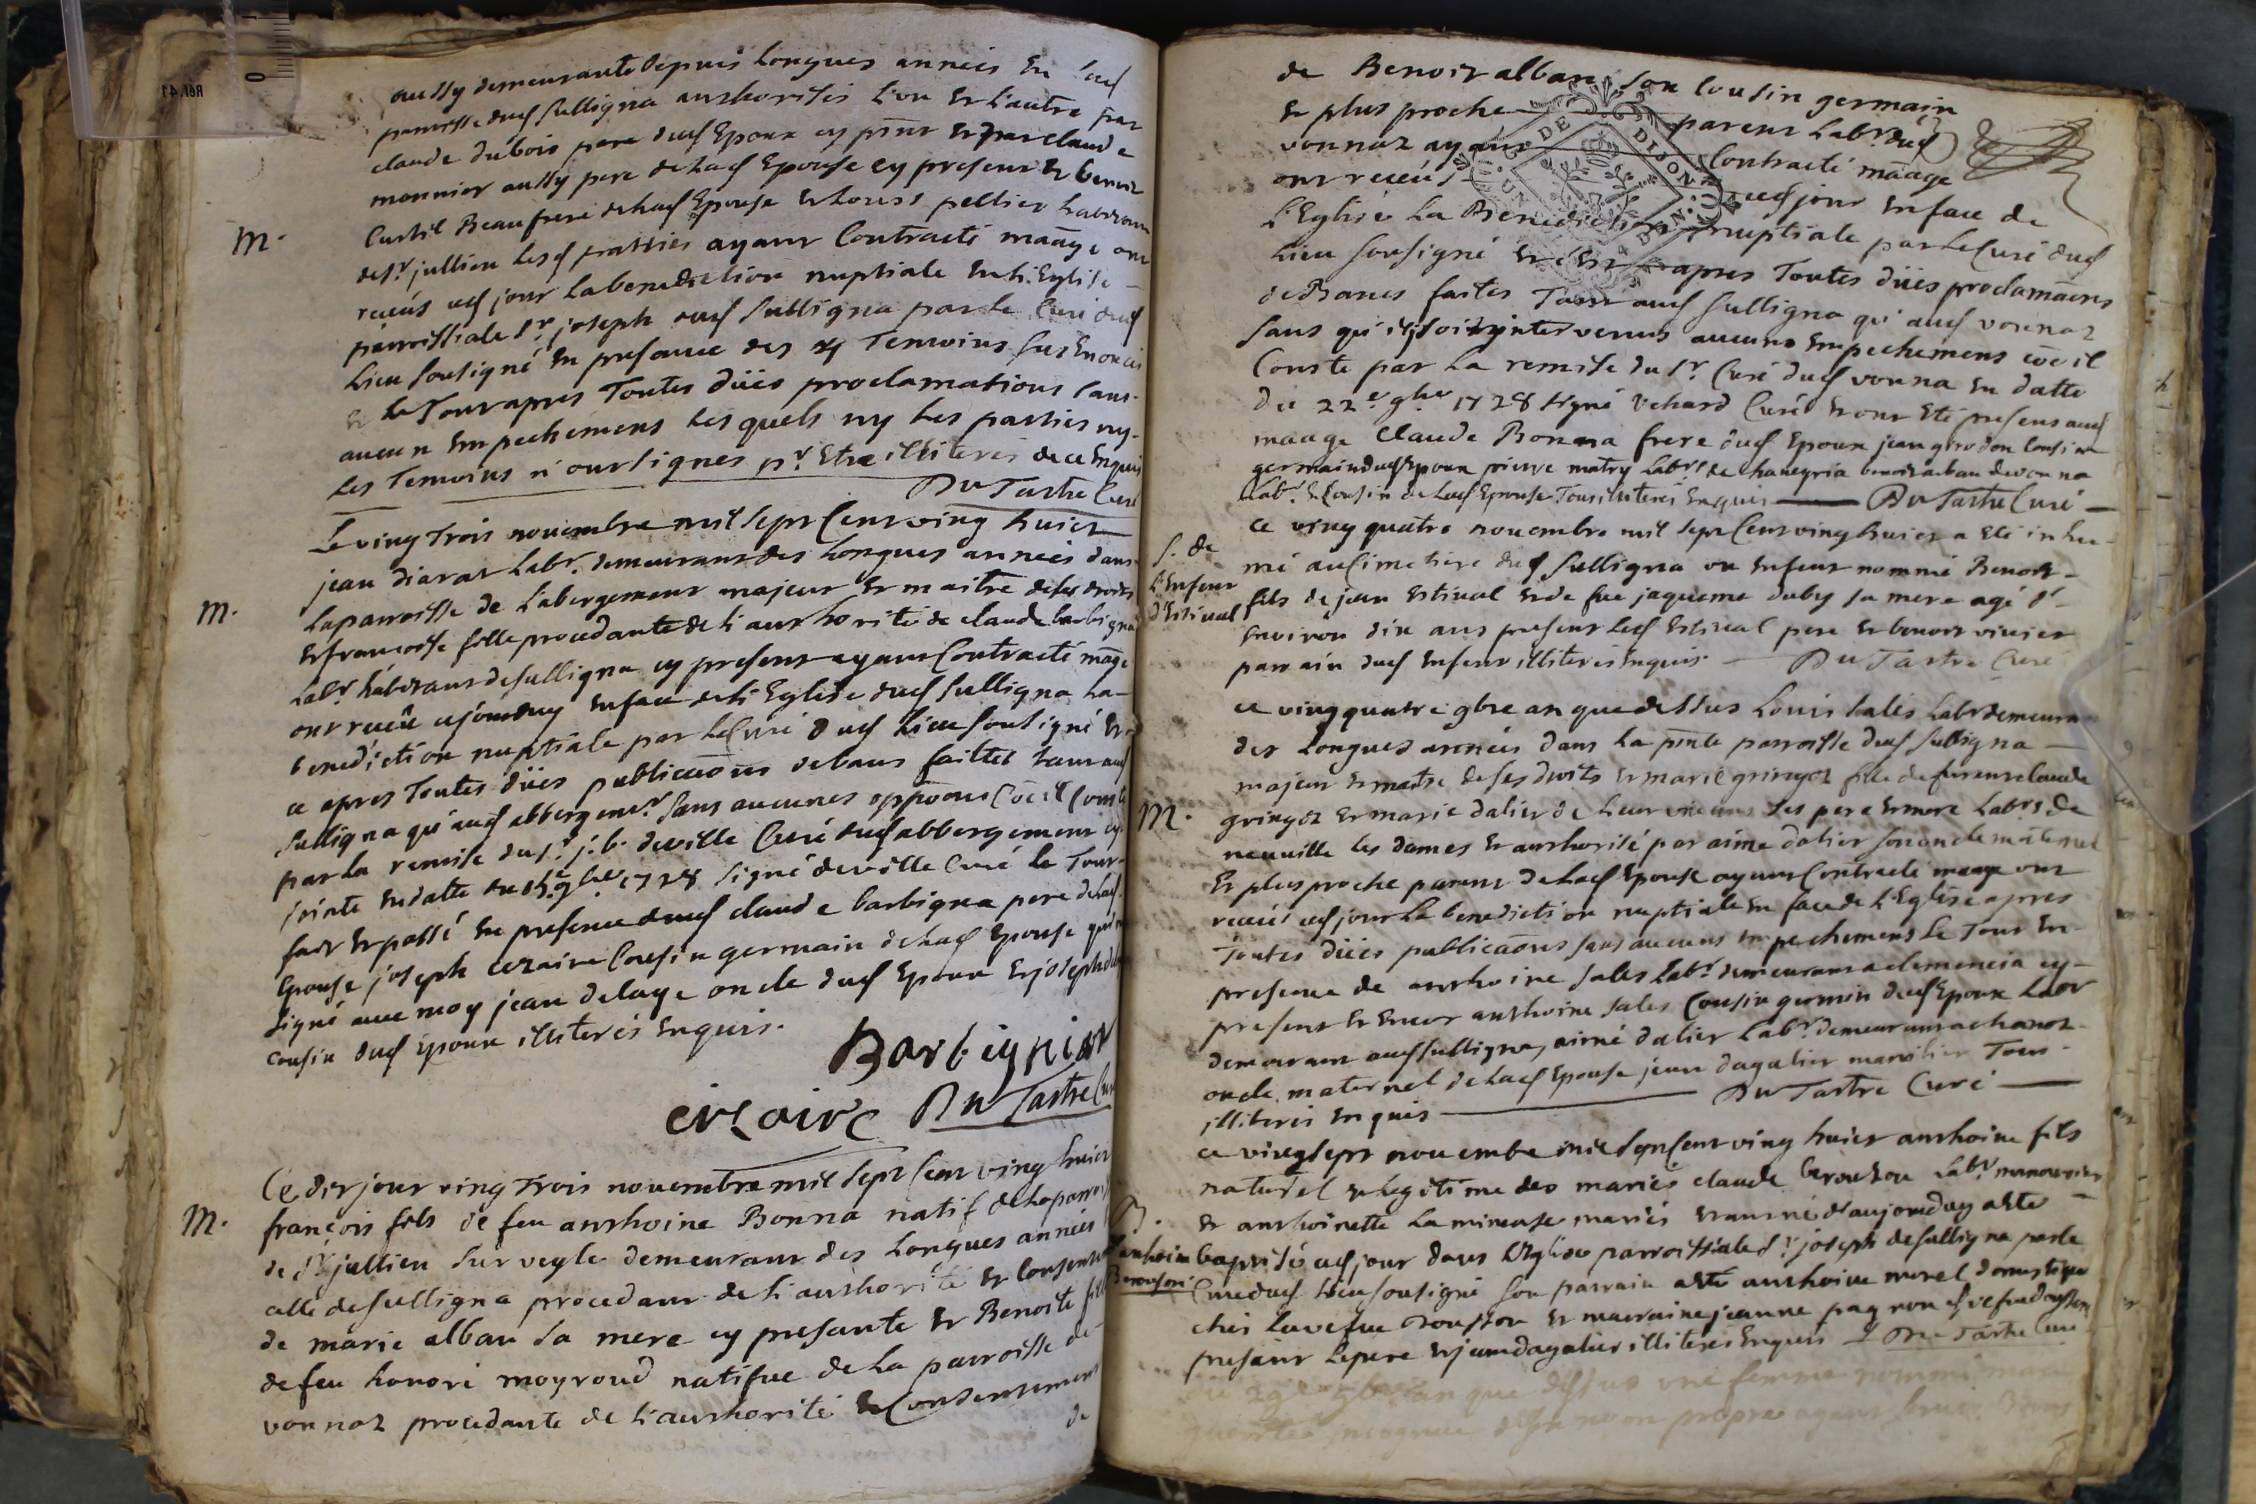 aussy demeurante depuis Longues années En
parroisse dud Sulligna authorisés L'on Et L'autre par
claude dubois pere dud Epoux cy pnt Et par claude
monnier aussy pere de Lad Epouse cy present Et benoit
Curtil Beaufrere de lad Epouse Et Louis peltier habitant
M.
de st jullien Lesd parties ayant Contracté maage ont
receus ced jour La benediction nuptiale En L'Eglise
parroissiale st joseph dud Sulligna par Le Curé dud
Lieu Sousigné En presance des Temoins sus Enoncés
Le Tout apres Toutes düës proclamations sans
aucun Empechemens Lesquels ny Les parties ny
Les Temoins n'ont signes pr Etre illiterés de ce Enquis
Du Tartre Curé
Le ving Trois novembre mil Sept Cent ving huict
jean diarat Labr demeurant des Longues années dans
M.
La parroisse de L'abergement majeur Et maitre de ses droits
Et francoise fille procedante de L'authorité de claude barbignat
Labr habitant de Sulligna cy present ayant Contracté maage
ont receu cejourduy En face de L'Eglise dud Sulligna La
benediction nuptiale par Le Curé dud Lieu Sousigné Et
ce apres Toutes düës publications de bans faittes tant aud
Sulligna qu'aud abbergemt Sans aucunes oppoons Coe il Conste
par La remise du sr j. b. deville Curé dud abbergement cy
jointe En datte du 1728 signé deville Curé Le Tout
fait Et passé En presence dud claude barbigna pere de Lad
Epouse joseph cezaire Cousin germain de Lad Epouse qui
signé avec moy jean delaye oncle dud Epoux Et joseph
cousin dud Epoux illiterés Enquis.
Barbigniat
cezaire Du Tartre Curé
Ce dit jour ving Trois novembre mil Sept Cent ving huict
M.
françois fils de feu anthoine Bonna natif de La parroisse
de st jullien Sur veyle demeurant des Longues années
celle de Sulligna procedant de L'authorité Et Consentement
de marie alban Sa mere cy presante Et Benoite fille
de feu honoré moyroud natifve de La parroisse de
vonnaz procedante de L'authorité Et Consentement
de
de Benoit alban Son Cousin germain
Et plus proche parent Labr dud
vonnaz ayant Contracté maage
ont receu ced jour En face de
L'Eglise La Benediction nuptiale par Le Curé dud
Lieu Sousigné apres Toutes düës proclamaons
de Bancs faites Tant aud Sulligna qu'aud vonnaz
Sans qu'il soit intervenus aucuns Empechemens coe il
Conste par La remise du sr Curé dud vonna En datte
du 22e 9bre 1728 signé vchard Curé Et ont Eté presens aud
maage Claude Bonna frere dud Epoux jean girodon Cousin
germain dud Epoux pierre matry Labr de chaneyria benoit alban de vonna
Labr & Cousin de Lad Epouse Tous illiterés Enquis Du Tartre Curé
S. de
L'Enfent
d'Estival
Ce ving quatre novembre mil Sept Cent ving huict a Eté inhu-
mé au Cimetiere dud Sulligna un Enfent nommé Benoit
fils de jean Estival Et de fue jaqueme duby sa mere agé d'
Environ dix ans present Led Estival pere Et benoit vivier
parrain dud Enfent illiterés Enquis Du Tartre Curé
ce ving quatre 9bre an que dessus Louis Sales Labr demeurant
des Longues années dans La pnte parroisse dud Sulligna
majeur Et maitre de ses droits Et marie gringoz fille de furent claude
M.
gringoz Et marie dalier de Leur vivans Ses pere Et mere Labrs de
neuville Les dames Et authorisé par aimé dalier son oncle maternel
Et plus proche parent de Lad Epouse ayant Contracté maage ont
receu ced jour La benediction nuptiale En face de L'Eglise apres
Toutes düës publicaons sans aucuns Empechemens Le Tout En
presence de anthoine Sales Labr demeurant a clemencia cy
present Et Encor anthoine Sales Cousin germin dud Epoux Labr
demeurant aud Sulligna, aimé dalier Labr demeurant a chanoz
oncle maternel de Lad Epouse jean dagalier Tous
illiterés Enquis Du Tartre Curé
ce ving Sept novembe mil Sept Cent ving huict anthoine fils
naturel & legitime des mariés claude berouson Labr
B.
Et anthoinette Lamineuse mariés Et aut né d'aujourduy a Ete
anthoine
Berouson
baptisé ced jour dans L'Eglise parroissiale st joseph de Sulligna par Le
Curé dud Lieu Sousigné Son parrain a Eté anthoine morel domestique
chés La vefve Et marraine jeanne pagnon
presant Le pere Et jean dagalier illiterés Enquis Du Tartre Curé
an que dessus une femme nommé
UN DE DIJON